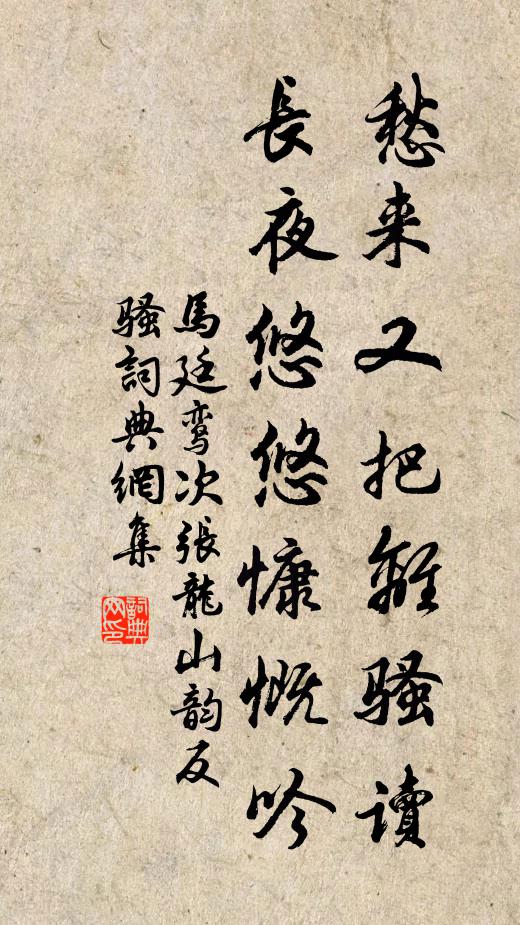 愁来又把離骚讀
長夜悠悠慷慨吟
馬廷鸾次張龍山韵反
骚詞典網集
詞典网印